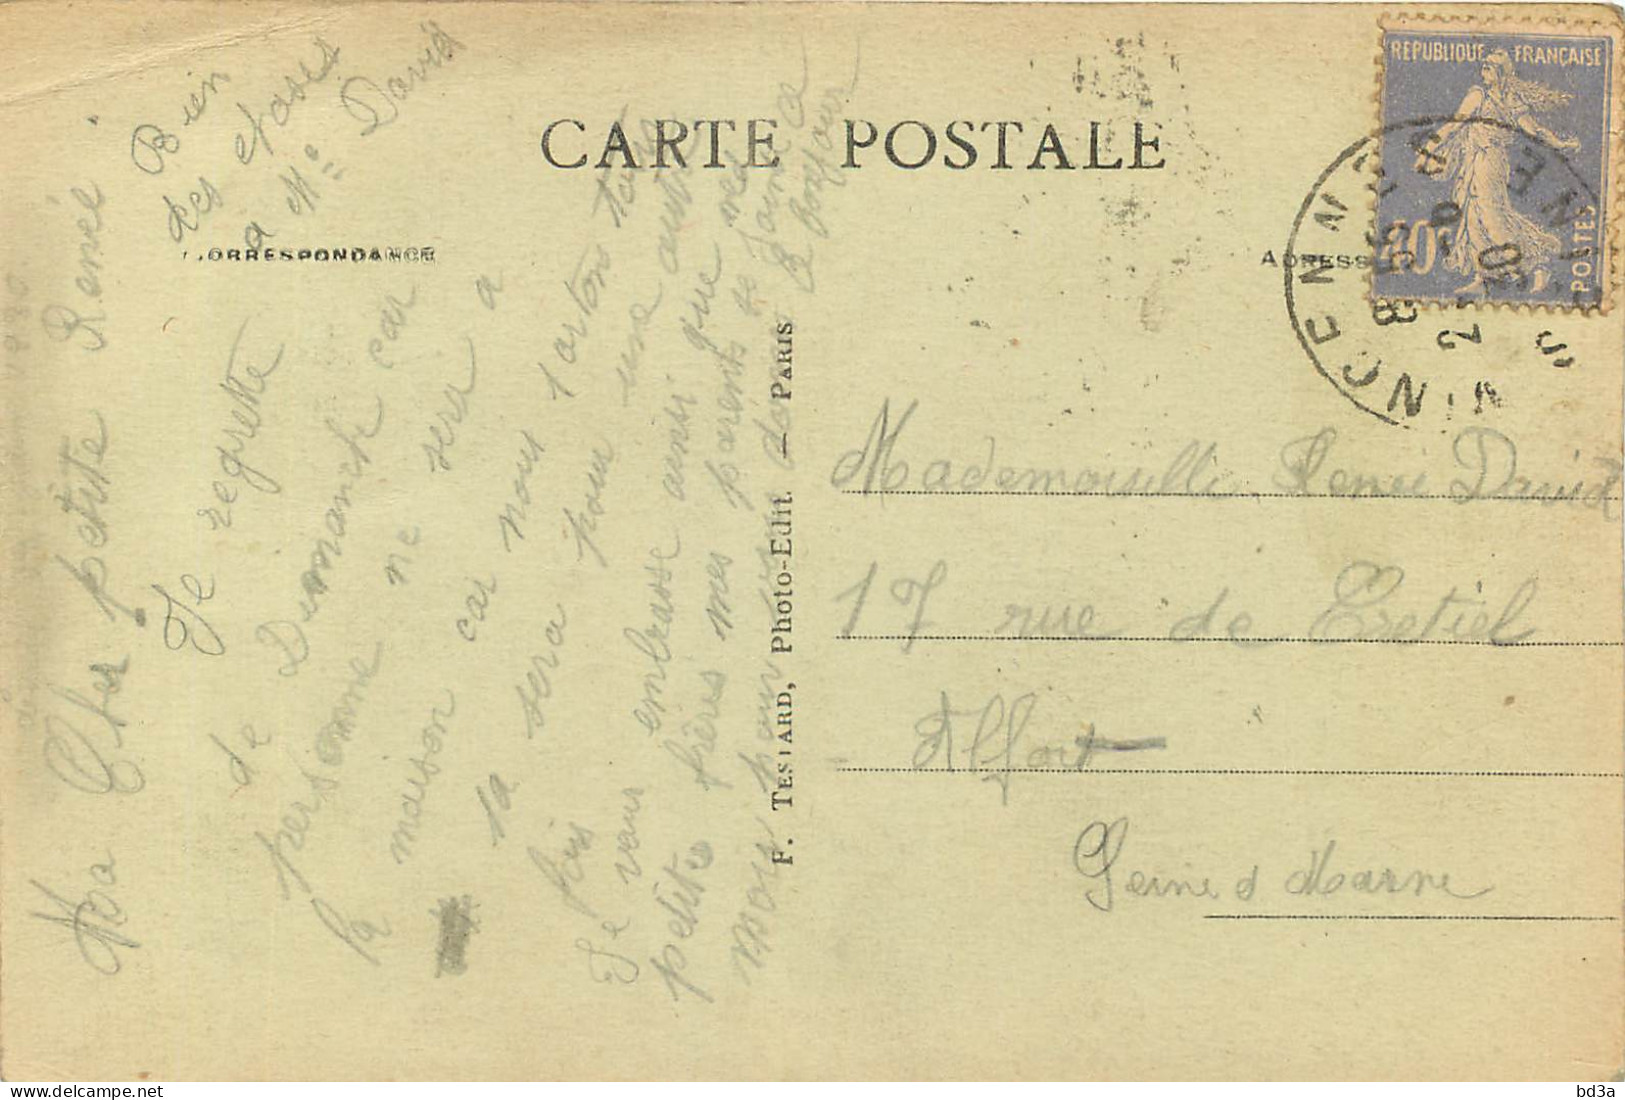 CARTE POSTALE
CORRESPONDANCE
ADRESSE
REPUBLIQUE FRANÇAISE
40c
POSTES
VINCENNES
SEINE
8 55
2 -
30
F. TESTARD, Photo-Edit - PARIS
Bien
des choses
a Me David
Ma Cher petite Renée.
Je regrette
de Dimanche
personne car
la ne sera a
maison car nous
la sera
fois pour une autre
Je vous embrasse ainsi que vos
petits frères mes parents se
nous pour donné
le bonjour
Mademoiselle Renée David
17 rue de Creteil
Alfort
Seine d Marne
bd3a